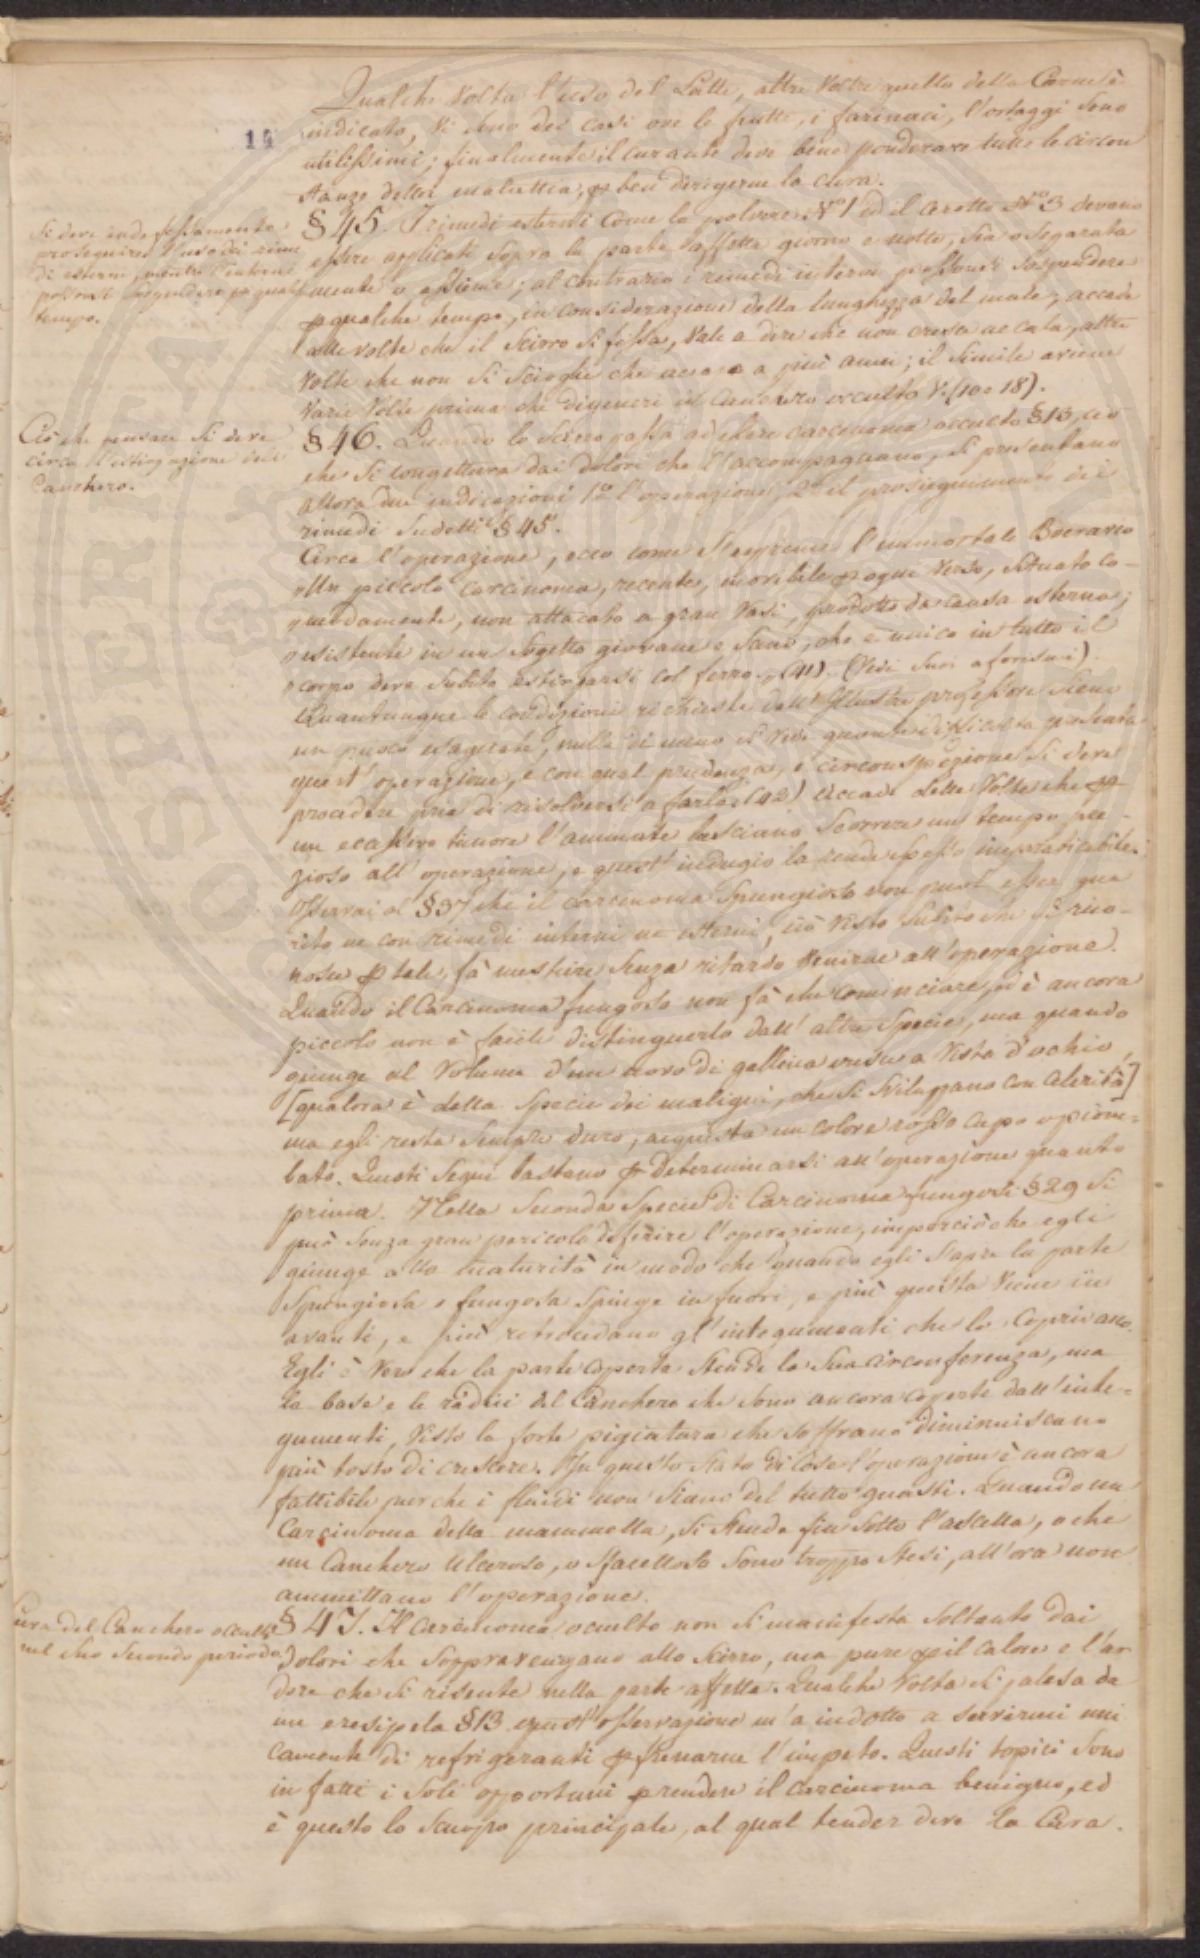 14
Qualche Volta l'uso del Latte, altre Volte quello della Carne è
indicato, Vi sono dei casi ove le frutta, i farinaci, l'ortaggi sono
utilissimi; finalmente il curante deve bene ponderare tutte le circon
stanze della malattia, p ben dirigerne la cura.
Si deve indefessamente
proseguire l'uso dei rime
di esterni, mentre l'interni
possonsi sospendere p qualche
tempo.
§ 45. I rimedi esterni come la polvere N.º 1 ed il cerotto N.º 3 devono
essere applicati sopra la parte affetta giorno e notte, sia separata
mente o assieme; al contrario i rimedi interni possonsi sospendere
p qualche tempo, in considerazione della lunghezza del male; accade
alle volte che il Scirro si fissa, Vale a dire che non cresce ne cala, altre
Volte che non si scioglie che a più anni; il simile aviene
Varie Volte prima che digeneri in Canchero occulto V. (10 e 18).
Ciò che pensare si deve
circa l'estirpazione del
Canchero.
§ 46. Quando lo Scirro passa ad essere carcinoma occulto § 13, ciò
che si congettura dai dolori che l'accompagnano, si presentano
allora due indicazioni 1.º l'operazione, 2.º il proseguimento dei
rimedi sudetti § 45.
Circa l'operazione, ecco come s'esprime l'immortale Boeravio
"Un piccolo carcinoma, recente, movibile p ogni Verso, situato co-
"modamente, non attacato a gran Vasi, prodotto da causa esterna;
"esistente in un sogetto giovane e sano, che è unico in tutto il
"corpo deve subito estirparsi col ferro., (41). (Vedi suoi aforismi).
Quantunque le condizioni richieste dall'Illustre professore siano
un puoco esagerate, nulla di meno si vede quante dificoltà presenta
quest'operazione, e con qual prudenza, e circonspezione si deve
procedere pria di risolversi a farla (42) Accade delle Volte che p
un ecessivo timore l'ammalate lasciano scorrere un tempo pre-
zioso all'operazione, e quest'indugio la rende spesso impraticabile.
Osservai al § 37 che il carcinoma spungioso non puol esser gua
rito ne con rimedi interni ne esterni, ciò Visto subito che si rico-
nosce p tale, fà mestiere senza ritardo Venirne all'operazione.
Quando il Carcinoma fungoso non fà che cominciare, ed è ancora
piccolo non è facile distinguerlo dall'altre specie, ma quando
giunge al Volume d'un uovo di gallina cresce a Vista d'ochio,
[qualora è della specie dei maligni, che si sviluppano con celerità]
ma egli resta sempre duro, acquista un colore rosso cupo o piom-
bato. Questi segni bastano p determinarsi all'operazione quanto
prima. Nella seconda specie di Carcinoma fungosi § 29 si
può senza gran pericolo deferire l'operazione, imperciochè egli
giunge alla maturità in modo che quando egli s'apre la parte
spungiosa o fungosa spinge in fuori, e più questa Viene in
avanti, e più retrocedano gl'integumenti che la coprivano.
Egli è Vero che la parte coperta stende la sua circonferenza, ma
la base e le radici del Canchero che sono ancora coperte dall'inte-
gumenti, Visto la forte pigiatura che soffrano diminuiscano
più tosto di crescere. In questo stato di cose l'operazione è ancora
fattibile perche i fluidi non siano del tutto guasti. Quando un
Carcinoma della mammella, si stende fin sotto l'ascella, o che
un Canchero Ulceroso, o sfacelloso sono troppo stesi, all'ora non
ammettano l'operazione.
Cura del Canchero occulto
nel suo secondo periodo.
§ 47. Il carcinoma occulto non si manifesta soltanto dai
dolori che soppravengano allo Scirro, ma pure p il calore e l'ar
dore che si risente nella parte affetta. Qualche Volta si palesa da
un eresipela § 13 quest'osservazione m'a indotto a servirmi uni
camente di refrigeranti p frenarne l'impeto. Questi topici sono
in fatti i soli opportuni p rendere il carcinoma benigno, ed
è questo lo scuopo principale, al qual tender deve la Cura.